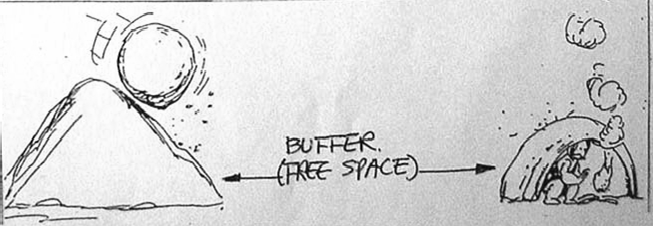 BUFFER.
(FREE SPACE)